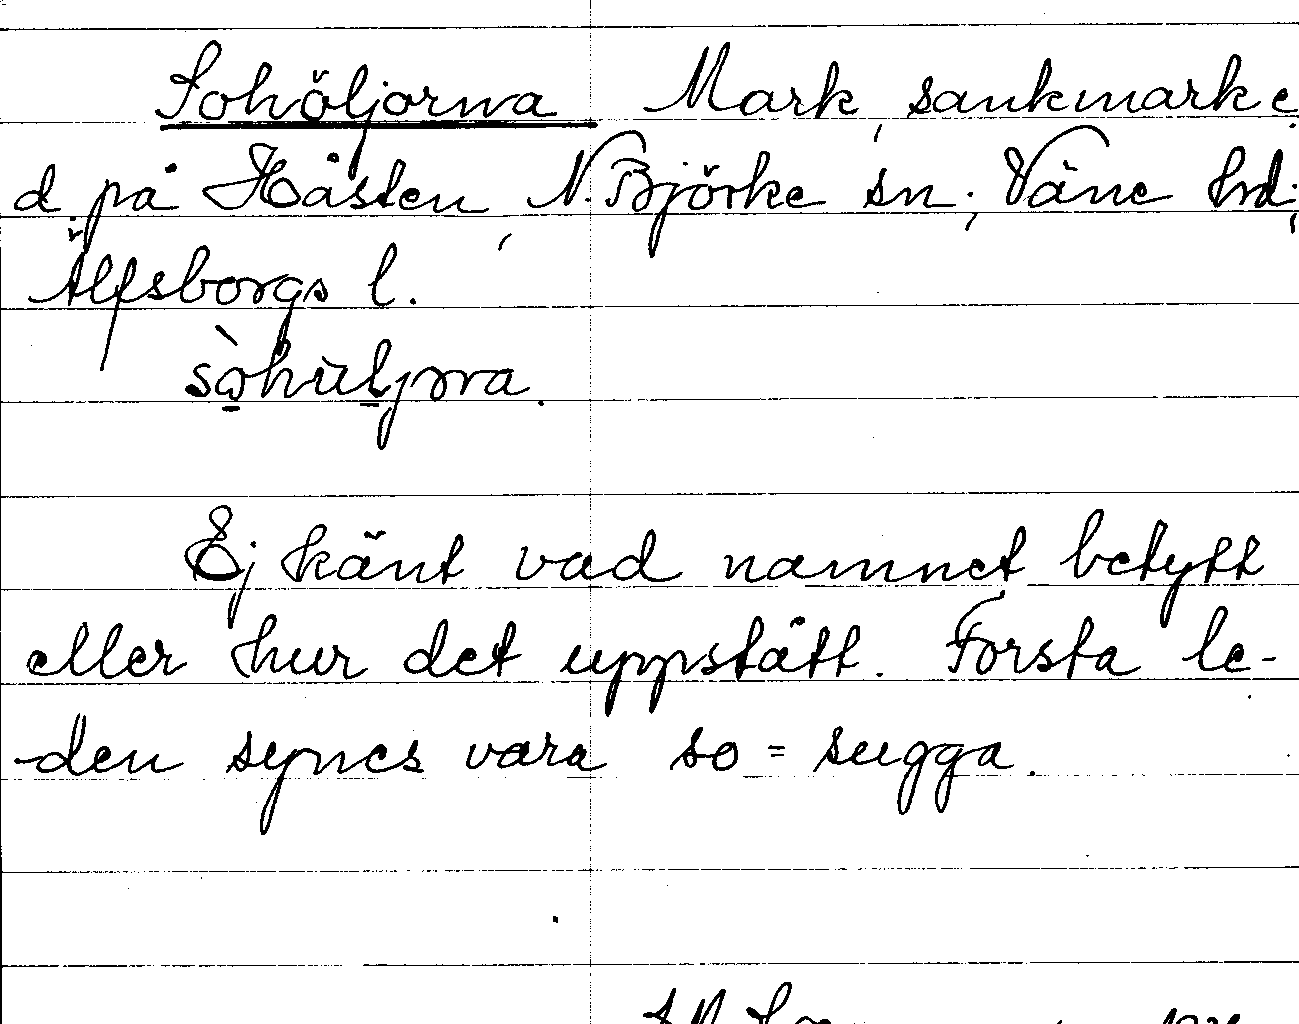 Sohöljorna Mark, sankmarke
d. på Håsten, N. Björke sn; Väne hd;
Älfsborgs l.
Ej känt vad namnet betytt
eller hur det uppstått. Första le-
den synes vara so = sugga.